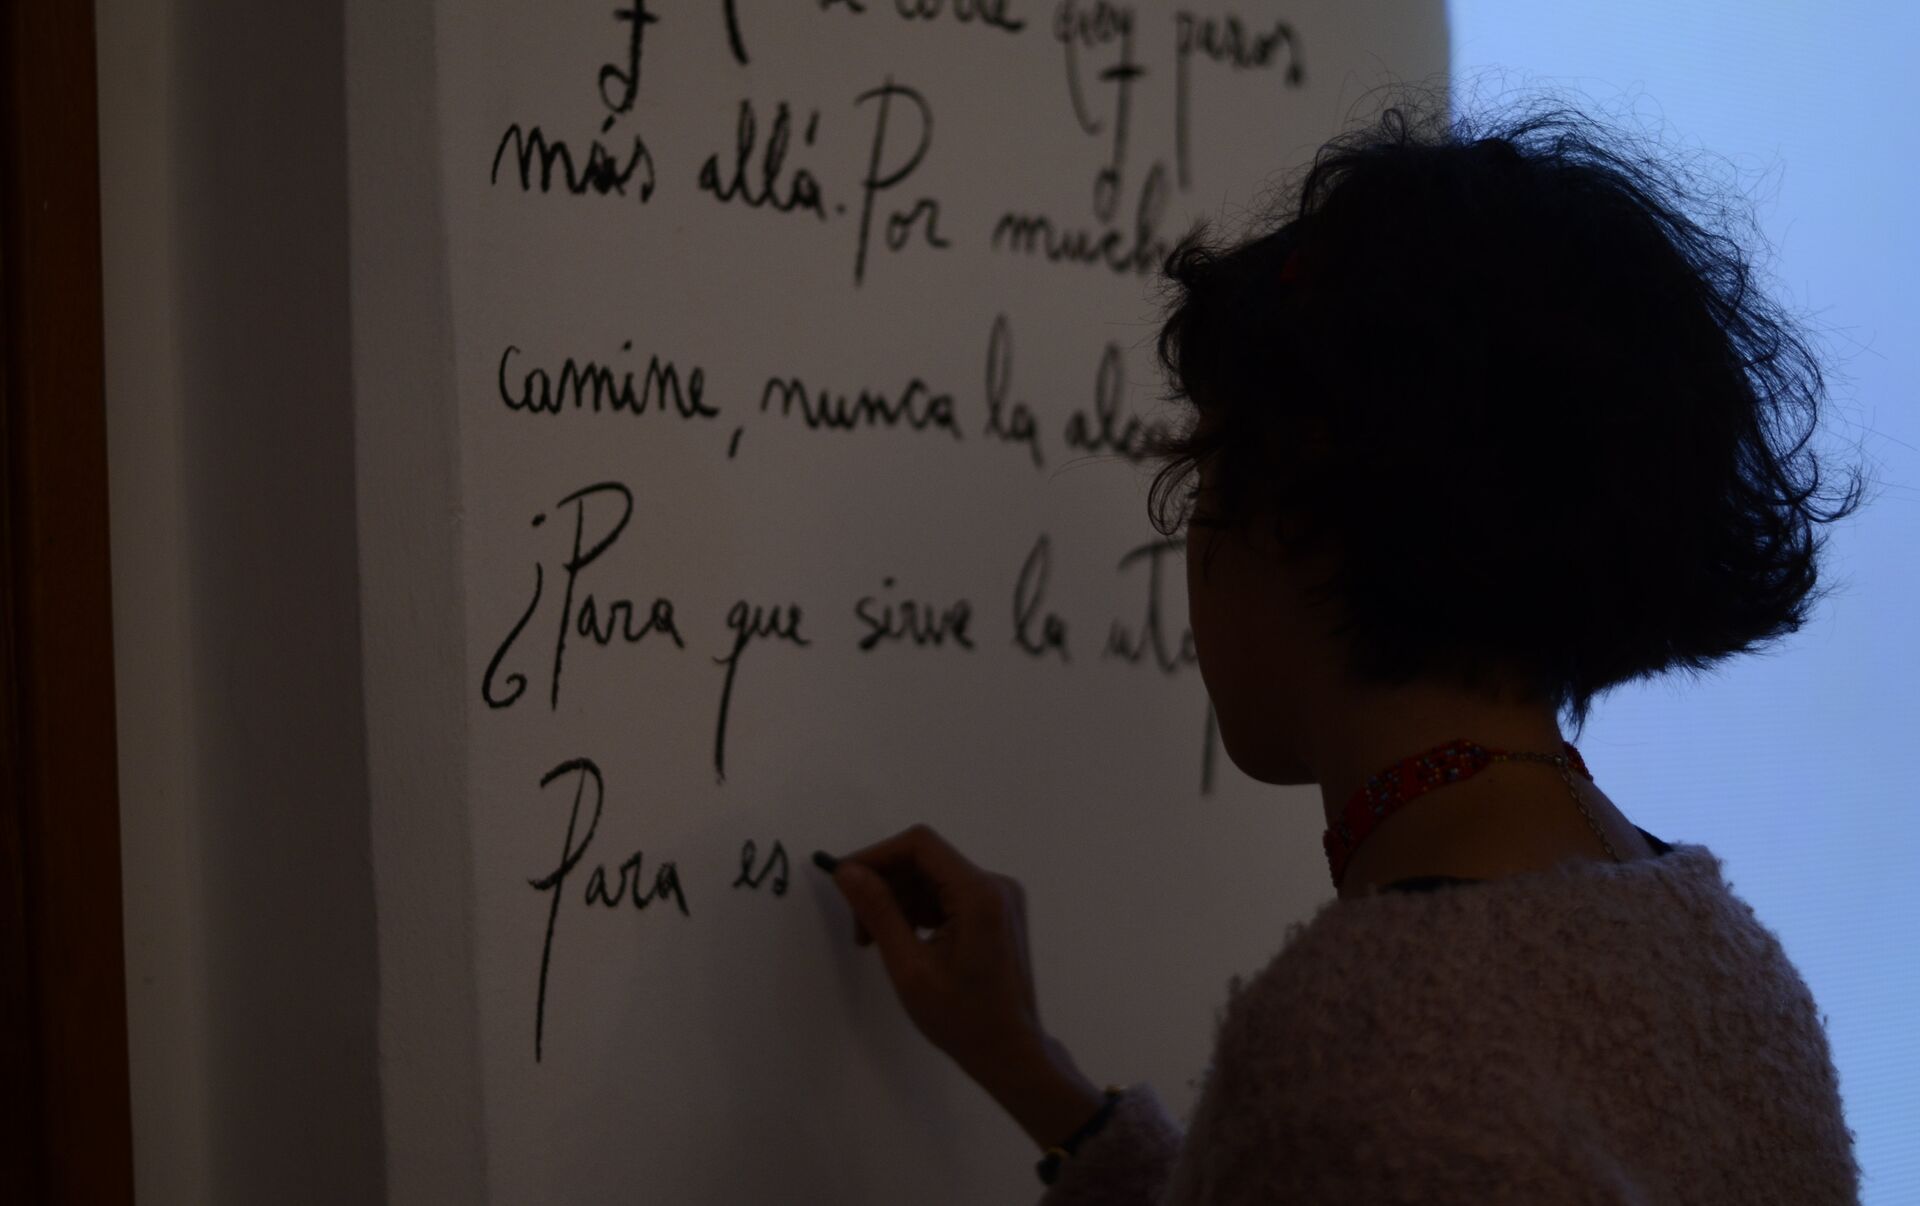 corre diez pasos
más allá. Por much
camine, nunca la alc
¿Para que sirve la utop
Para es